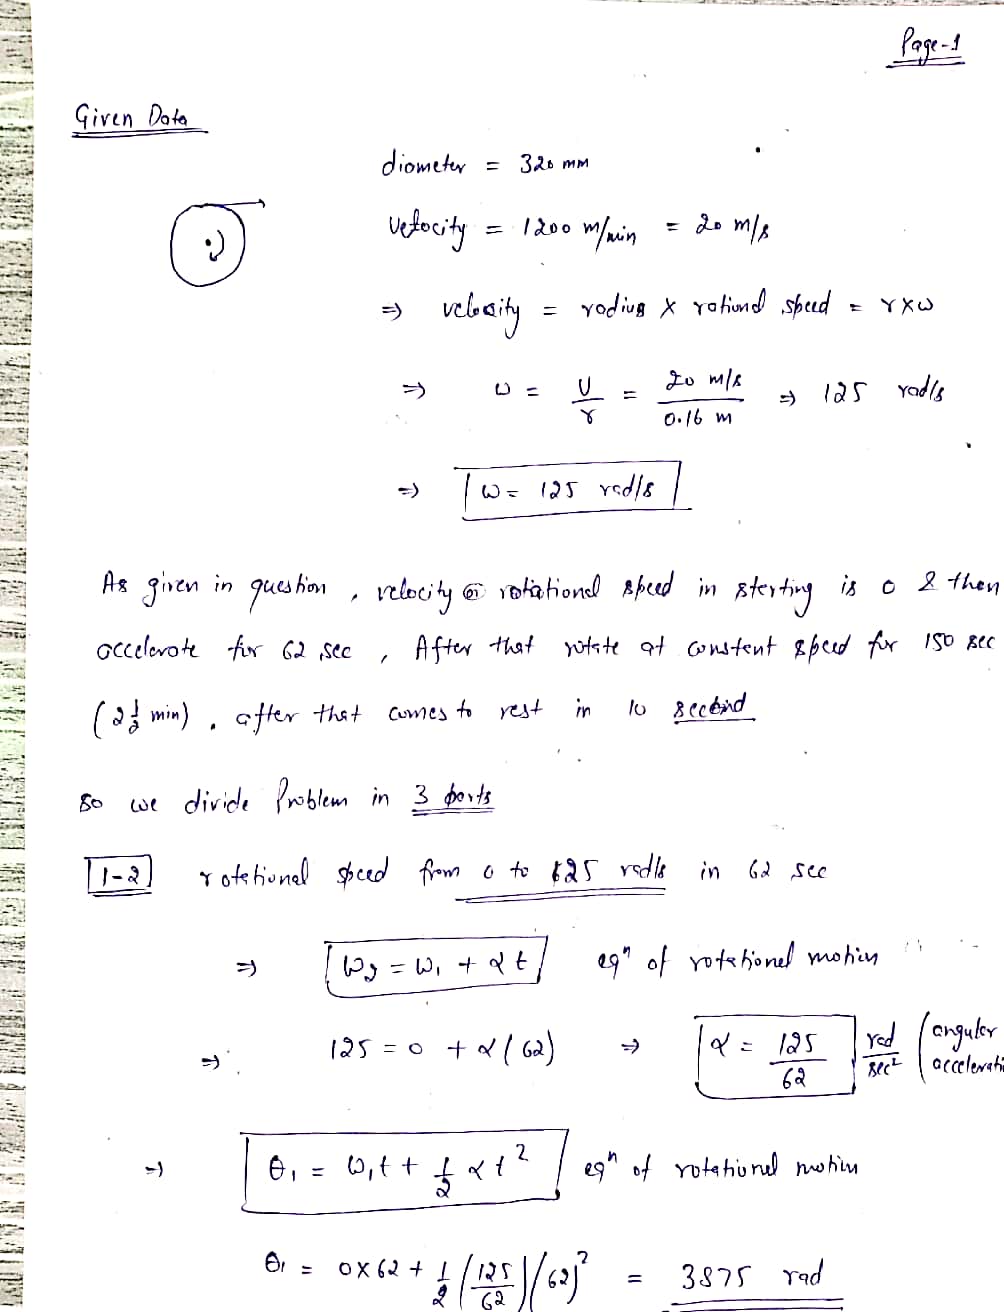 Page-1
Given Data
diameter = 320 mm
Velocity = 1200 m/min = 20 m/s
⇒ velocity = radius X rotional speed = r×ω
⇒ ω = v/r = 20 m/s / 0.16 m ⇒ 125 rad/s
⇒ ω = 125 rad/s
As given in question , velocity or rotational speed in sterting is 0 & then
accelerate for 62 sec , After that rotate at constent speed for 150 sec
(2½ min) , after that comes to rest in 10 second
So we divide Problem in 3 parts
1-2 rotational speed from 0 to 125 rad/s in 62 sec
⇒ ω₂ = ω₁ + αt eqⁿ of rotational motion
⇒ 125 = 0 + α(62) ⇒ α = 125/62 rad/sec² (angular accelerati
⇒ θ₁ = ω₁t + ½ αt² eqⁿ of rotational motion
θ₁ = 0×62 + ½ (125/62)(62)² = 3875 rad